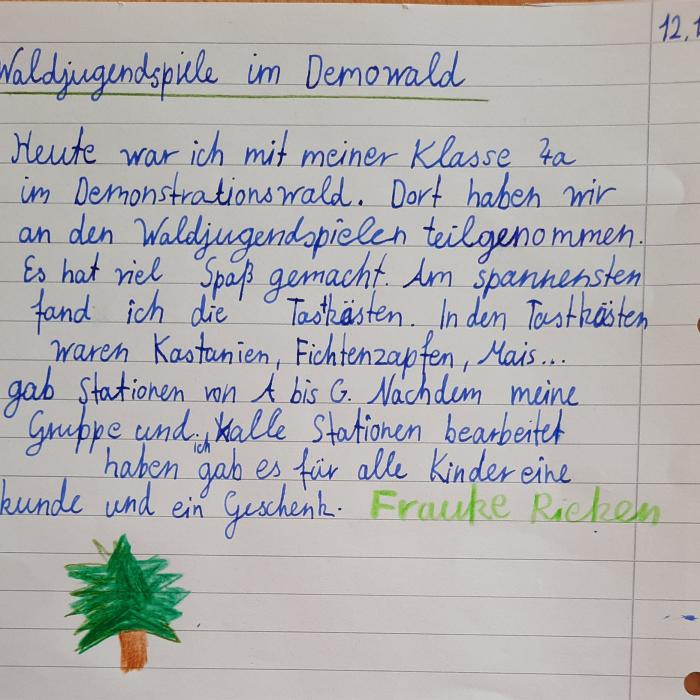 12.1
Waldjugendspiele im Demowald
Heute war ich mit meiner Klasse 4a
im Demonstrationswald. Dort haben wir
an den Waldjugendspielen teilgenommen.
Es hat viel Spaß gemacht. Am spannensten
fand ich die Tastkästen. In den Tastkästen
waren Kastanien, Fichtenzapfen, Mais...
gab Stationen von A bis G. Nachdem meine
Gruppe und ich alle Stationen bearbeitet
haben gab es für alle Kinder eine
kunde und ein Geschenk. Frauke Rieken